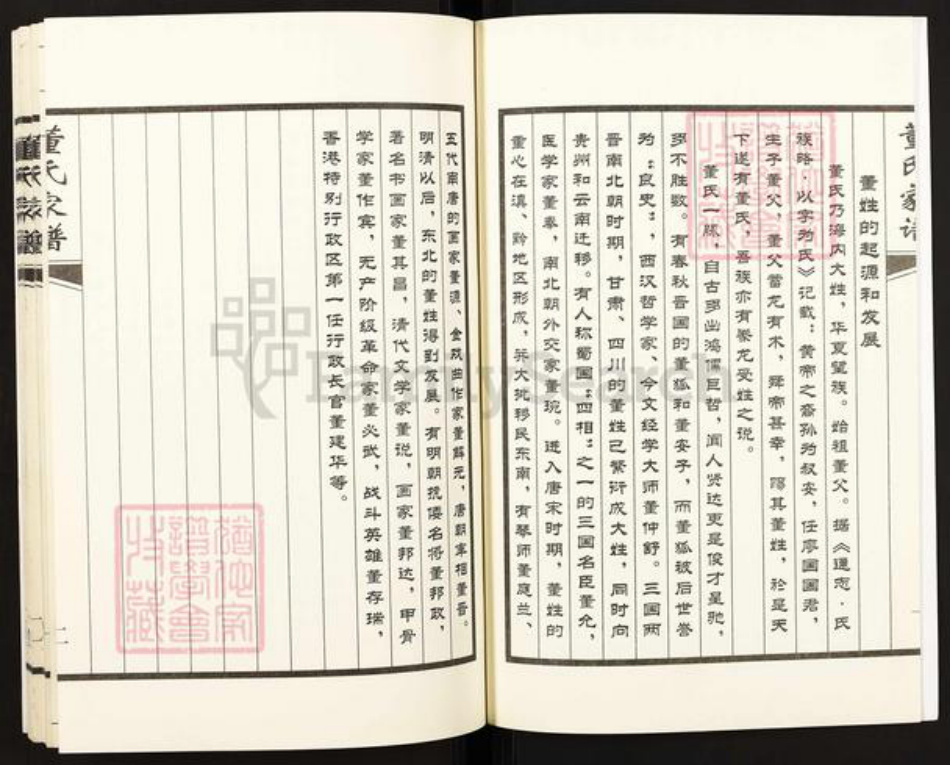 董氏家谱
董姓的起源和发展
董氏乃海内大姓，华夏望族。始祖董父。据《通志·氏
族略·以字为氏》记载：黄帝之裔孙为叔安，任廖国国君，
生子董父，董父畜龙有术，舜帝甚幸，赐其董姓，於是天
下遂有董氏，吾族亦有豢龙受姓之说。
董氏一脉，自古多出鸿儒巨哲，闻人贤达更是俊才星驰，
多不胜数。有春秋晋国的董狐和董安予，而董狐被后世誉
为：良史；西汉哲学家、今文经学大师董仲舒。三国两
晋南北朝时期，甘肃、四川的董姓已繁衍成大姓，同时向
贵州和云南迁移。有人称蜀国：四相；之一的三国名臣董允，
医学家董奉，南北朝外交家董琬。进入唐宋时期，董姓的
重心在滇、黔地区形成，并大批移民东南，有琴师董庭兰、
五代南唐的画家董源、金戏曲作家董解元，唐朝宰相董晋。
明清以后，东北的董姓得到发展。有明朝抗倭名将董邦政，
著名书画家董其昌，清代文学家董说，画家董邦达，甲骨
学家董作宾，无产阶级革命家董必武，战斗英雄董存瑞，
香港特别行政区第一任行政长官董建华等。
董氏家谱
董氏家谱
FamilySearch